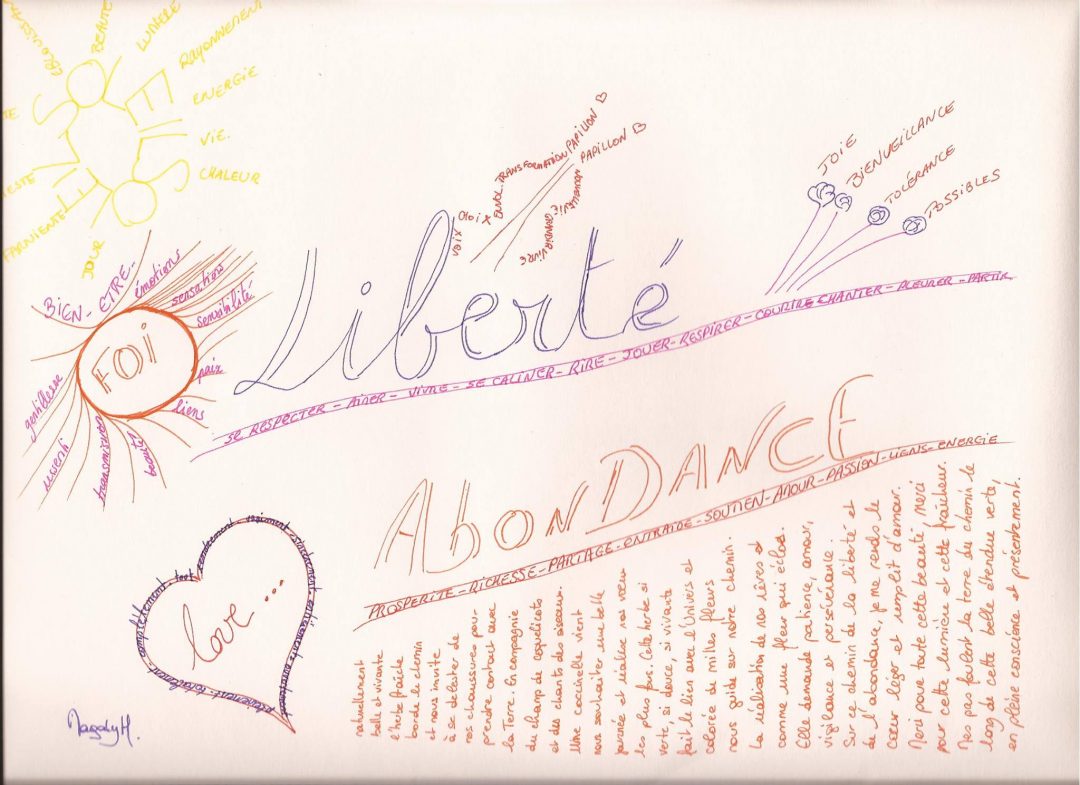 BEAUTÉ
LUMIÈRE
RAYONNEMENT
ENERGIE
VIE.
CHALEUR
JOUR
FARNIENTE
SOLEIL
BIEN-ETRE-
émotions
sensation
sensibilité
FOI
paix
liens
beauty
transmission
ressenti
gentillesse
VOIX
CHOIX
ENVOL-TRANSFORMATION PAPILLON B
PAPILLON B
GRANDIR VIVRE
JOIE
BIENVEILLANCE
TOLÉRANCE
POSSIBLES
Liberté
SE RESPECTER - AIMER - VIVRE - SE CALINER - RIRE - JOUER - RESPIRER - COURIRE CHANTER - PLEURER - PARTIR
AbonDANCE
PROSPERITE - RICHESSE - PARTAGE - ENTRAIDE - SOUTIEN - AMOUR - PASSION - LIENS - ENERGIE
love...
MagalyH.
naturellement
belle et vivante
l'herbe fraîche
borde le chemin
et nous invite
à se délester de
nos chaussures pour
prendre contact avec
la Terre. En compagnie
du champ de coquelicots
et des chants des oiseaux.
Une coccinelle vient
nous souhaiter une belle
journée et réalise nos vœux
les plus fous. Cette herbe si
verte, si douce, si vivante
fait le lien avec l'Univers et
colorée de milles fleurs
nous guide sur notre chemin.
La réalisation de nos rêves et
comme une fleur qui éclos.
Elle demande patience, amour,
vigilance et persévérance.
Sur ce chemin de la liberté et
de l'abondance, je me rends le
cœur léger et rempli d'amour.
Merci pour toute cette beauté, merci
pour cette lumière et cette fraîcheur.
Nos pas foulent la terre du chemin le
long de cette belle étendue verte,
en pleine conscience et présentement.